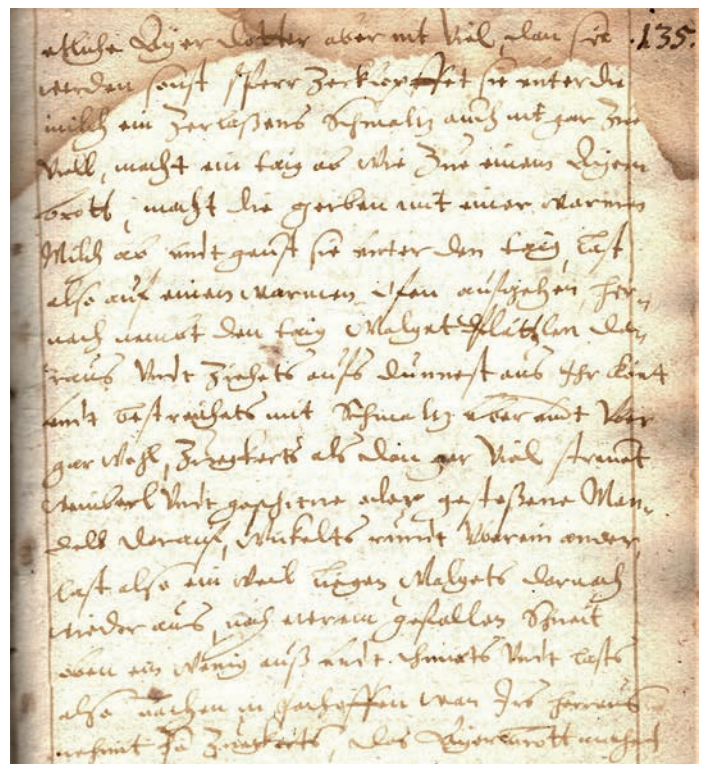 etliche Ayer dotter aber nit Viel, dan sie .135.
werden sonst sperr Zerklopffet sie unter die
milch ein Zerlaßens Schmaltz auch nit gar Zue
Viell, macht ein taig ab wie Zue einem Ayern
brott, macht die gerben mit einer warmen
Milch ab undt geust sie unter den taig, last
also auf einem warmen ofen aufgehen, her¬
nach nemet den taig Walget Plätzlen da¬
raus Undt Ziehets aufs dünnest aus Ihr könt
undt bestreichets mit Schmaltz über undt Vber
gar wohl, Zuckerts als dan gar Viel, streuet
weinberl Undt geschnitne oder gestoßene Man¬
dell darauf, Wickelts rundt Vberein ander,
last also ein weil liegen, Walgets darnach
wieder aus, nach eurem gefallen Schneit
oben ein wenig auß undt Undt lasts
also bachen, in wan Irs herraus
nehmt So Zuckerts, das Ayerbrott machet